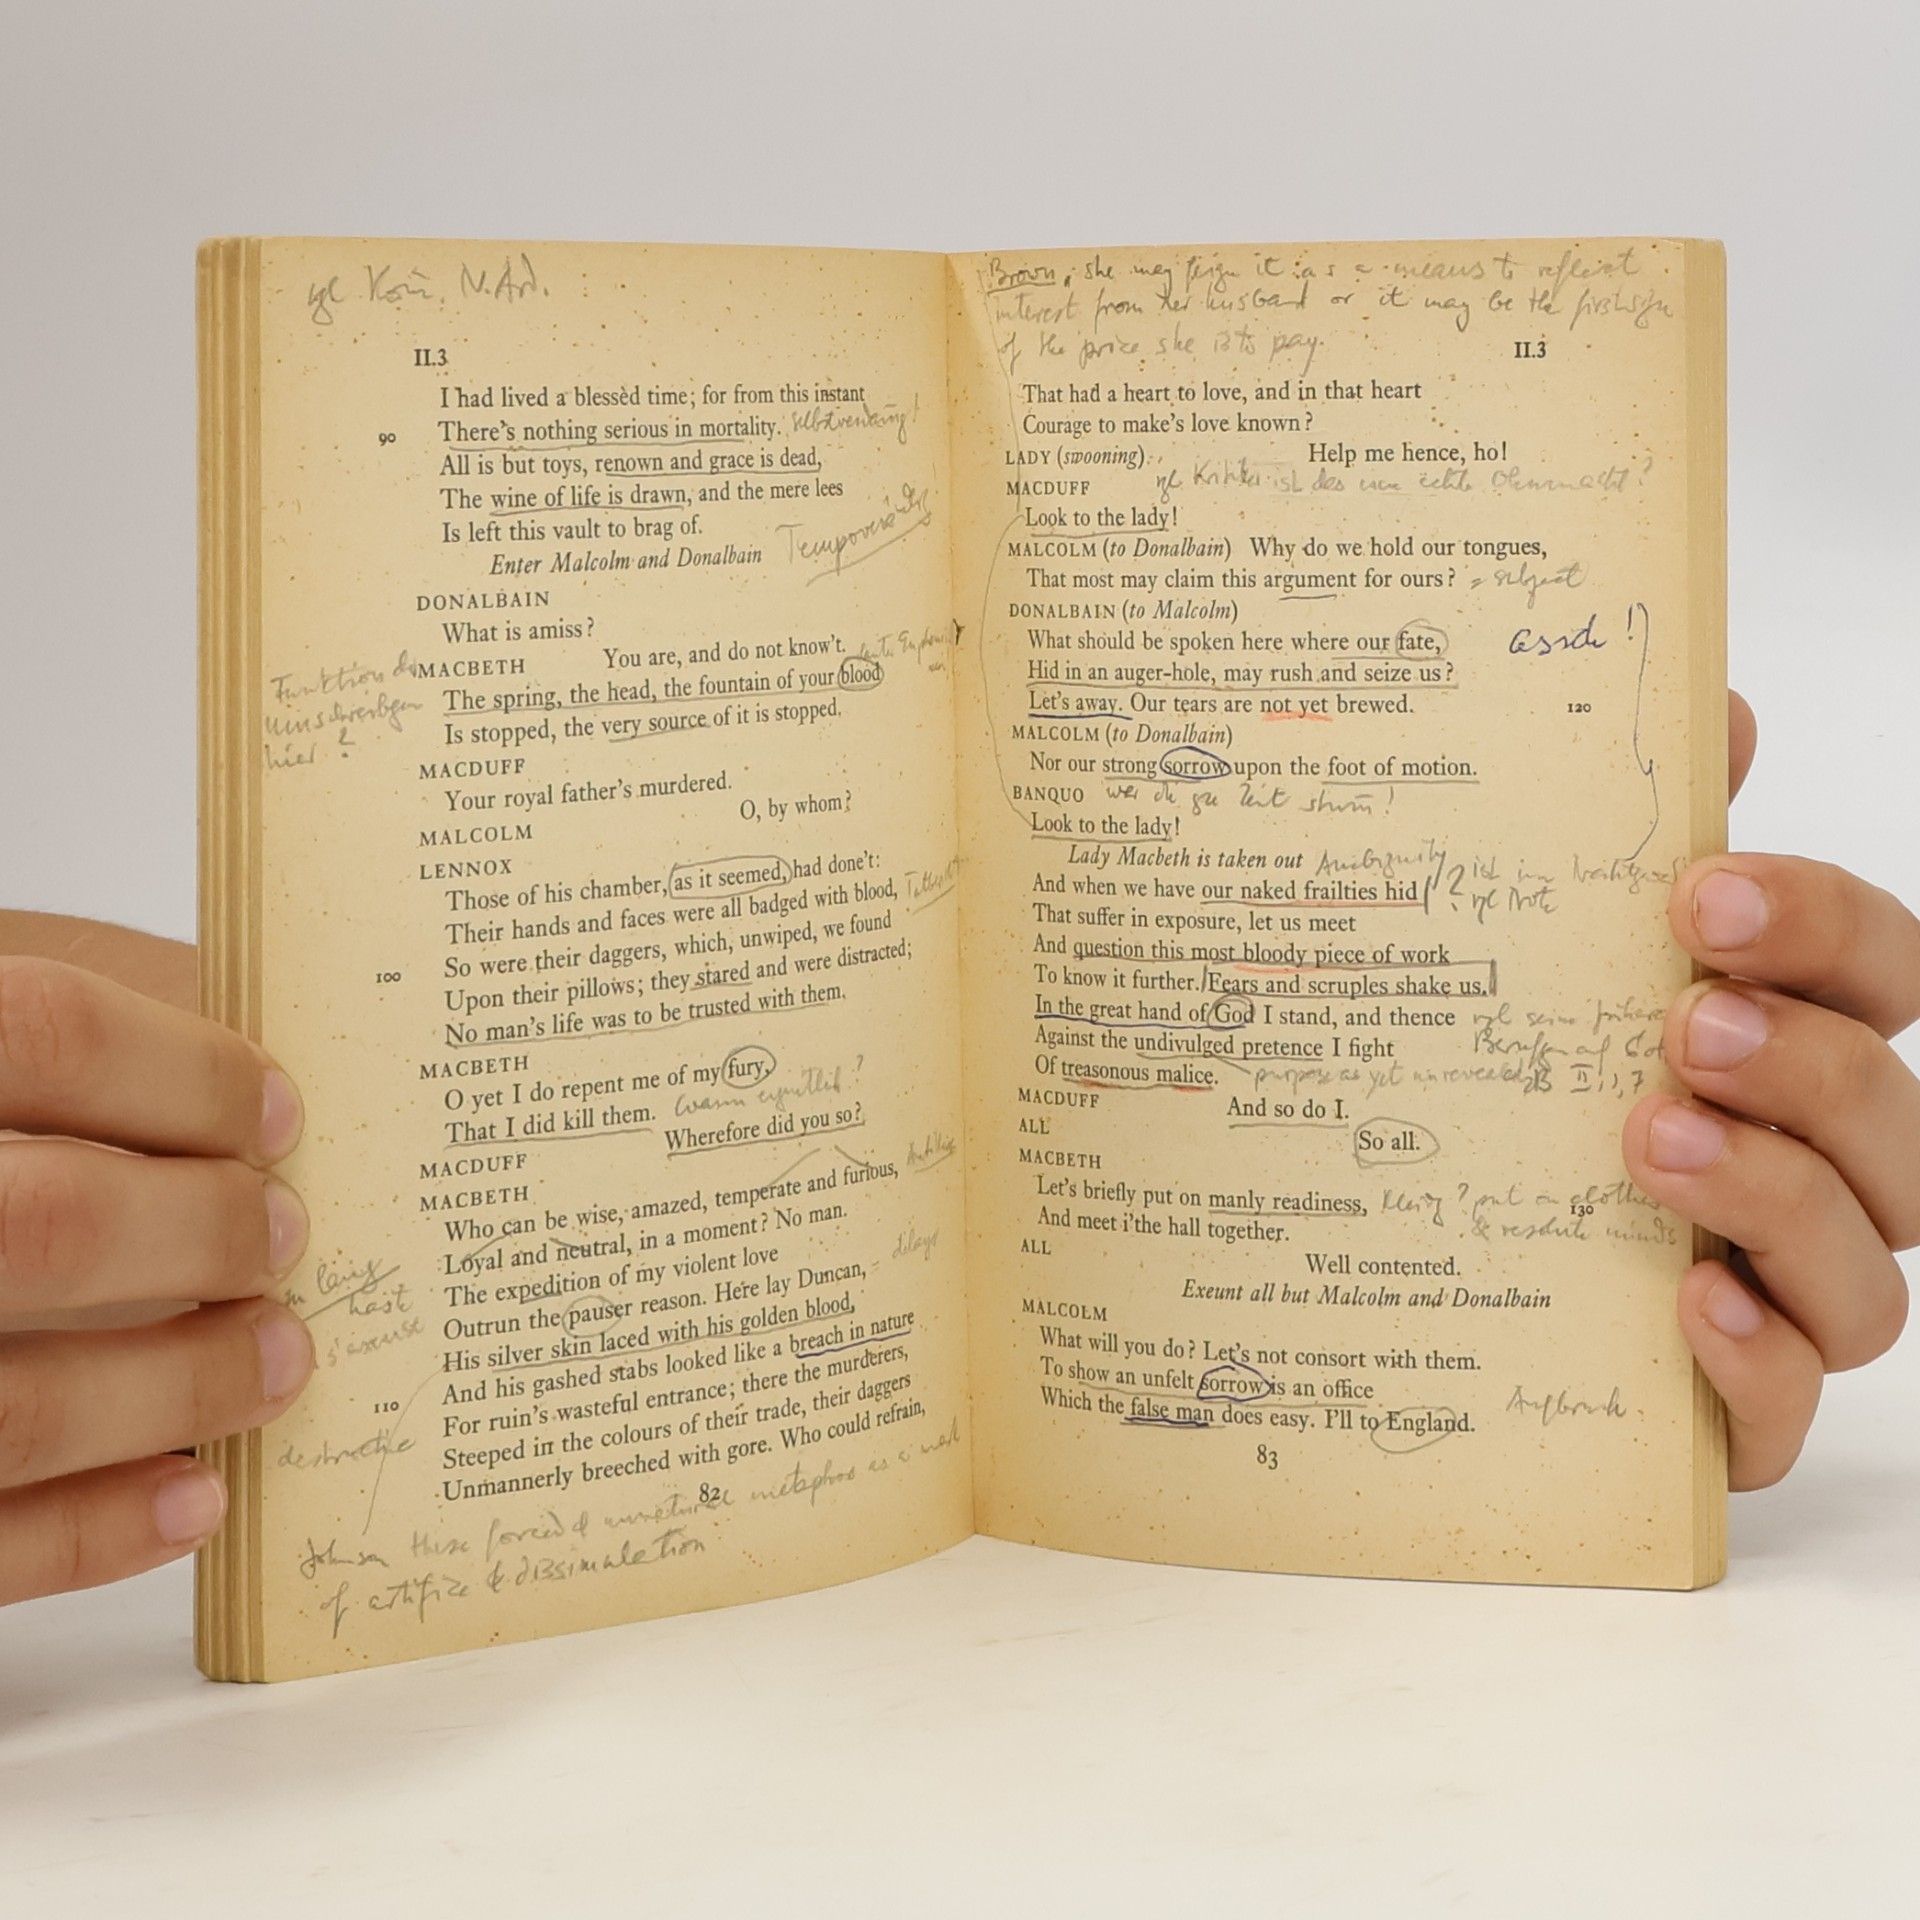 II.3
I had lived a blessèd time; for from this instant
90 There's nothing serious in mortality.
All is but toys, renown and grace is dead,
The wine of life is drawn, and the mere lees
Is left this vault to brag of.
Enter Malcolm and Donalbain
DONALBAIN
What is amiss?
MACBETH You are, and do not know't.
Funktion
The spring, the head, the fountain of your blood
hier?
Is stopped, the very source of it is stopped.
MACDUFF
Your royal father's murdered.
MALCOLM O, by whom?
LENNOX
Those of his chamber, as it seemed, had done't:
Their hands and faces were all badged with blood,
100 So were their daggers, which, unwiped, we found
Upon their pillows; they stared and were distracted;
No man's life was to be trusted with them.
MACBETH
O yet I do repent me of my fury,
That I did kill them.
MACDUFF Wherefore did you so?
MACBETH
Who can be wise, amazed, temperate and furious,
Loyal and neutral, in a moment? No man.
The expedition of my violent love
haste
Outrun the pauser reason. Here lay Duncan,
His silver skin laced with his golden blood,
And his gashed stabs looked like a breach in nature
110 For ruin's wasteful entrance; there the murderers,
Steeped in the colours of their trade, their daggers
Unmannerly breeched with gore. Who could refrain,
82
Johnson these forced unnatural metaphors as a mark
of artifice & dissimulation
Brown: she may feign it as a means to reflect
interest from her husband or it may be the first sign
of the price she is to pay.
II.3
That had a heart to love, and in that heart
Courage to make's love known?
LADY (swooning) Help me hence, ho!
MACDUFF
Look to the lady!
MALCOLM (to Donalbain) Why do we hold our tongues,
That most may claim this argument for ours? = subject
DONALBAIN (to Malcolm)
What should be spoken here where our fate,
Hid in an auger-hole, may rush and seize us?
Let's away. Our tears are not yet brewed. 120
MALCOLM (to Donalbain)
Nor our strong sorrow upon the foot of motion.
BANQUO
Look to the lady!
Lady Macbeth is taken out Ambiguity
And when we have our naked frailties hid ? vgl Note
That suffer in exposure, let us meet
And question this most bloody piece of work
To know it further. Fears and scruples shake us.
In the great hand of God I stand, and thence
Against the undivulged pretence I fight
Of treasonous malice. purpose as yet unrevealed
MACDUFF And so do I.
ALL So all.
MACBETH
Let's briefly put on manly readiness, put on clothes
And meet i'the hall together. 130 & resolute minds
ALL Well contented.
Exeunt all but Malcolm and Donalbain
MALCOLM
What will you do? Let's not consort with them.
To show an unfelt sorrow is an office
Which the false man does easy. I'll to England. Aufbruch
83